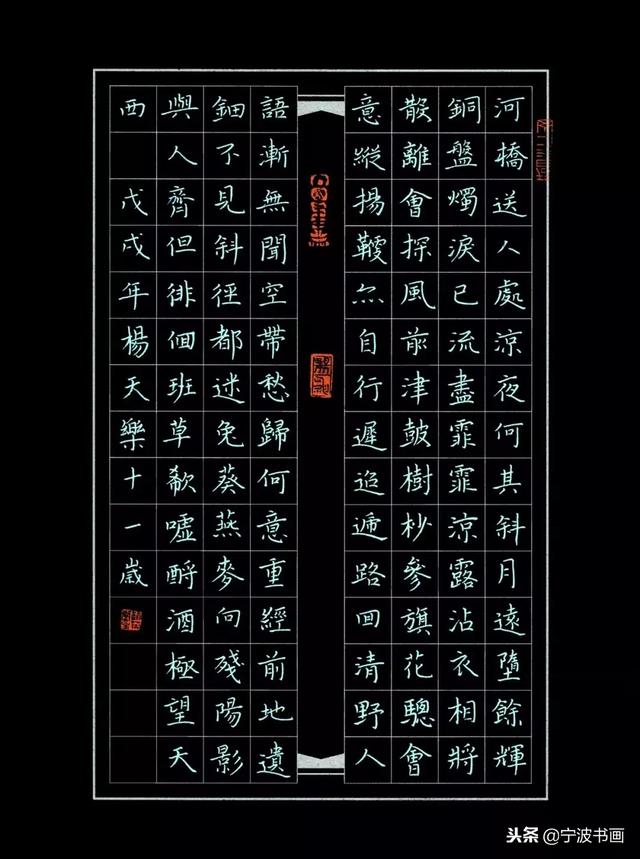 河橋送人處涼夜何其斜月遠墮餘輝
銅盤燭淚已流盡霏霏涼露沾衣相將
散離會探風前津鼓樹杪參旗花驄會
意縱揚鞭亦自行遲迢遞路回清野人
語漸無聞空帶愁歸何意重經前地遺
鈿不見斜徑都迷兔葵燕麥向殘陽影
與人齊但徘佪班草欷噓酹酒極望天
西 戊戌年楊天樂十一歲
头条@宁波书画